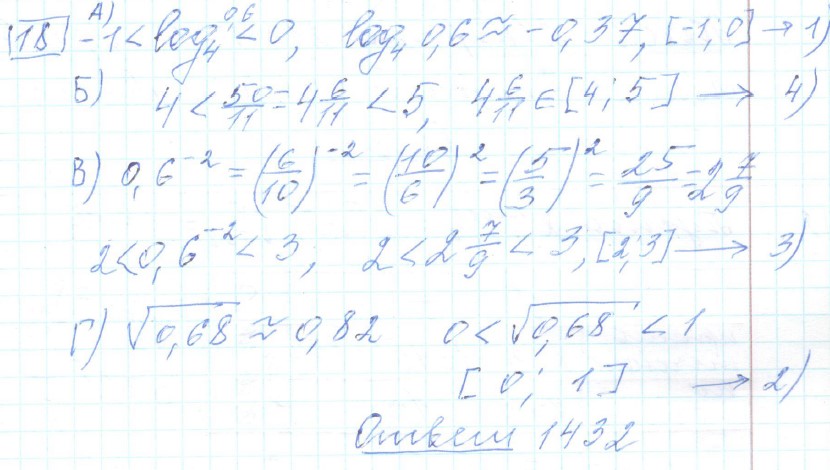 18 А) -1 < log₄ 0,6 < 0, log₄ 0,6 ≈ -0,37, [-1; 0] → 1)
Б) 4 < 50/11 = 4 6/11 < 5, 4 6/11 ∈ [4; 5] → 4)
В) 0,6⁻² = (6/10)⁻² = (10/6)² = (5/3)² = 25/9 = 2 7/9
2 < 0,6⁻² < 3, 2 < 2 7/9 < 3, [2; 3] → 3)
Г) √0,68 ≈ 0,82 0 < √0,68 < 1
[0; 1] → 2)
Ответ 1432